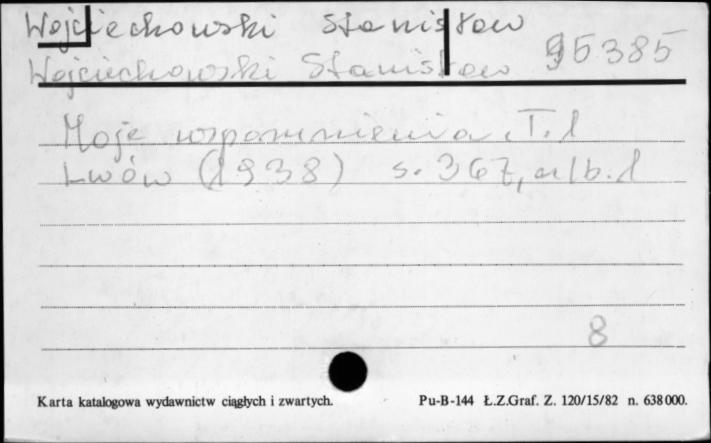 Wojciechowski Stanisław
Wojciechowski Stanisław 95385
Moje wspomnienia. T. 1
Lwów (1938) s. 367, alb. 1
8
Karta katalogowa wydawnictw ciągłych i zwartych. Pu-B-144 Ł.Z.Graf. Z. 120/15/82 n. 638000.